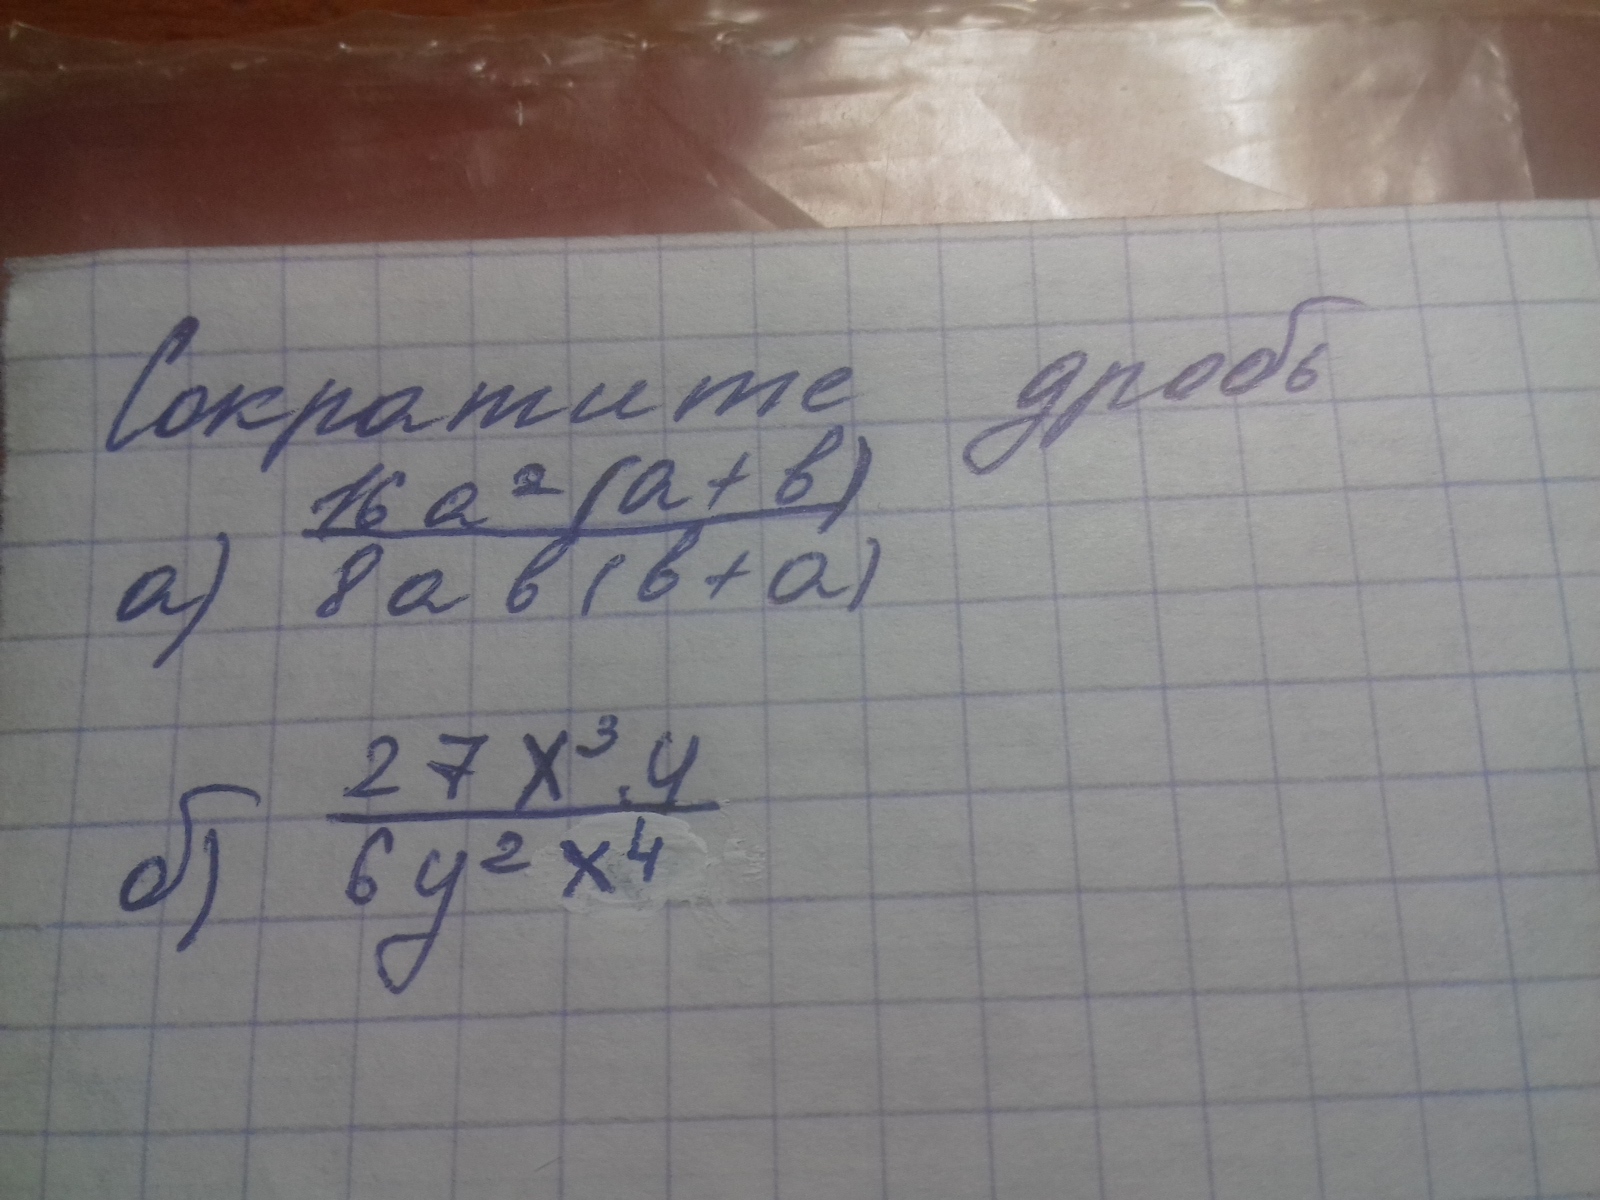 Сократите дробь
16a²(a+b)
а) 8ab(b+a)
27x³y
б) 6y²x⁴